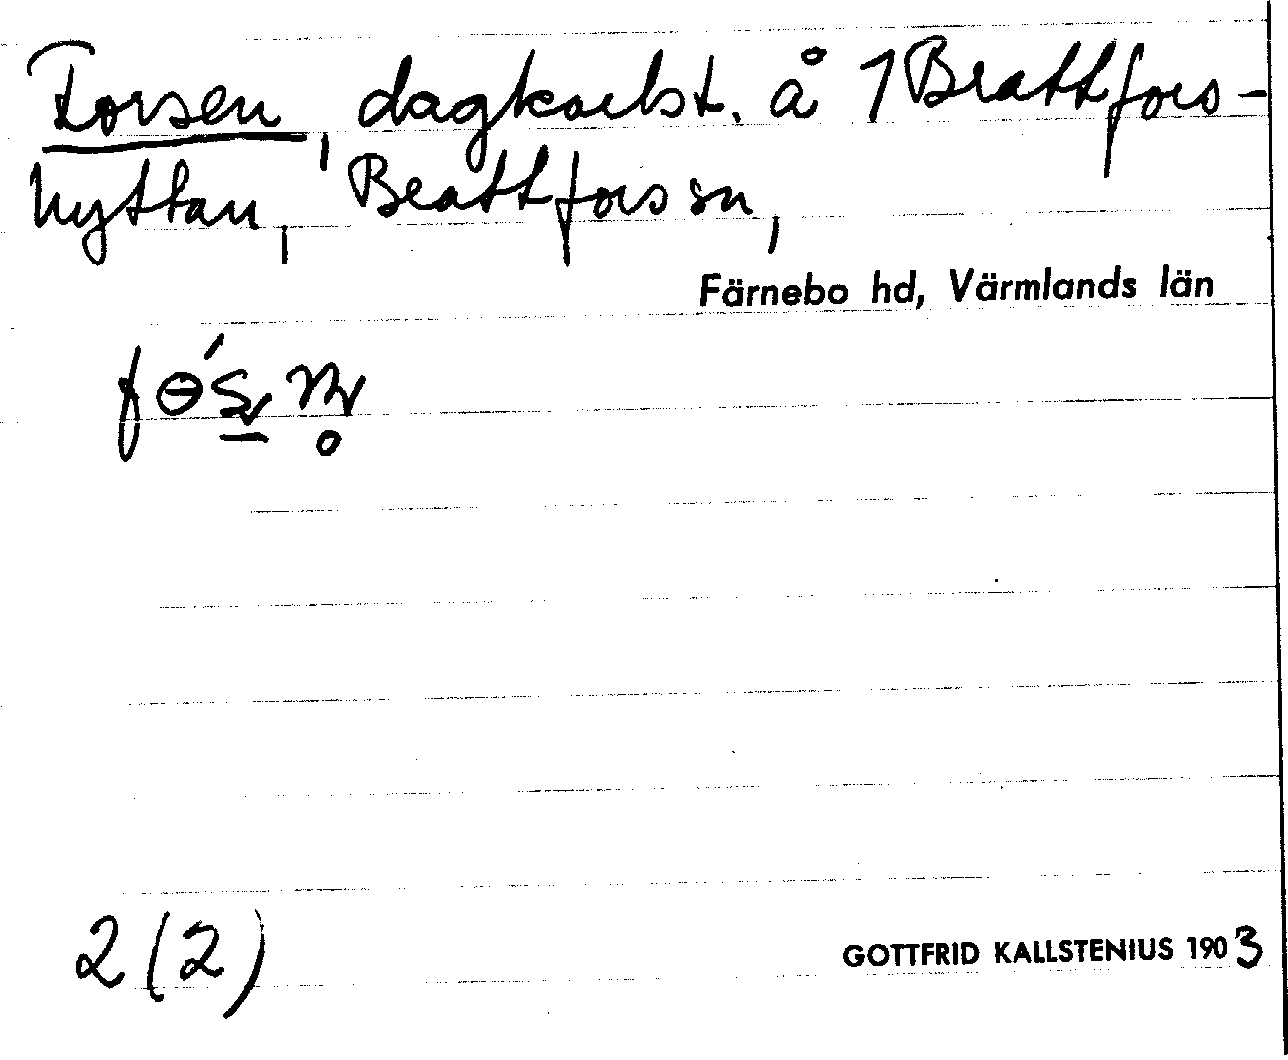 Forsen, dagkarlst. å 1 Brattfors-
hyttan, Brattfors sn,
Färnebo hd, Värmlands län
2 (2)
GOTTFRID KALLSTENIUS 1903